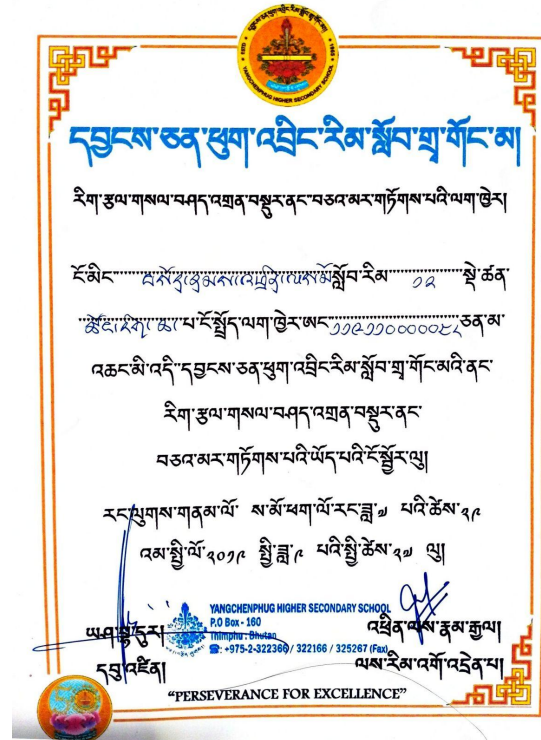 YANGCHENPHUG HIGHER SECONDARY SCHOOL
དབྱངས་ཅན་ཕུག་འབྲིང་རིམ་སློབ་གྲྭ་གོང་མ།
རིག་རྩལ་གསལ་བཤད་འགྲན་བསྡུར་ནང་བཅའ་མར་གཏོགས་པའི་ལག་ཁྱེར།
ངོ་མིང་ བསོད་ནམས་འཕྲིན་ལས་མོ སློབ་རིམ་ ༡༢ སྡེ་ཚན་
ཚོང་རིག་ ཆ་པ་ངོ་སྤྲོད་ལག་ཁྱེར་ཨང་ ཅན་མ་
འཆང་མི་འདི་དབྱངས་ཅན་ཕུག་འབྲིང་རིམ་སློབ་གྲྭ་གོང་མའི་ནང་
རིག་རྩལ་གསལ་བཤད་འགྲན་བསྡུར་ནང་
བཅའ་མར་གཏོགས་པའི་ཡོད་པའི་ངོ་སྦྱོར་ལུ།
རང་ལུགས་གནམ་ལོ་ ས་མོ་ཕག་ལོ་རང་ཟླ་༧ པའི་ཚེས་༢༩
འམ་སྤྱི་ལོ་༢༠༡༩ སྤྱི་ཟླ་༩ པའི་སྤྱི་ཚེས་༢༧ ལུ།
YANGCHENPHUG HIGHER SECONDARY SCHOOL
P.O Box - 160
Thimphu : Bhutan
☎: +975-2-322366 / 322166 / 325267 (Fax)
དབུ་འཛིན།
འཕྲིན་ལས་རྣམ་རྒྱལ།
ལས་རིམ་འགོ་འདྲེན་པ།
“PERSEVERANCE FOR EXCELLENCE”